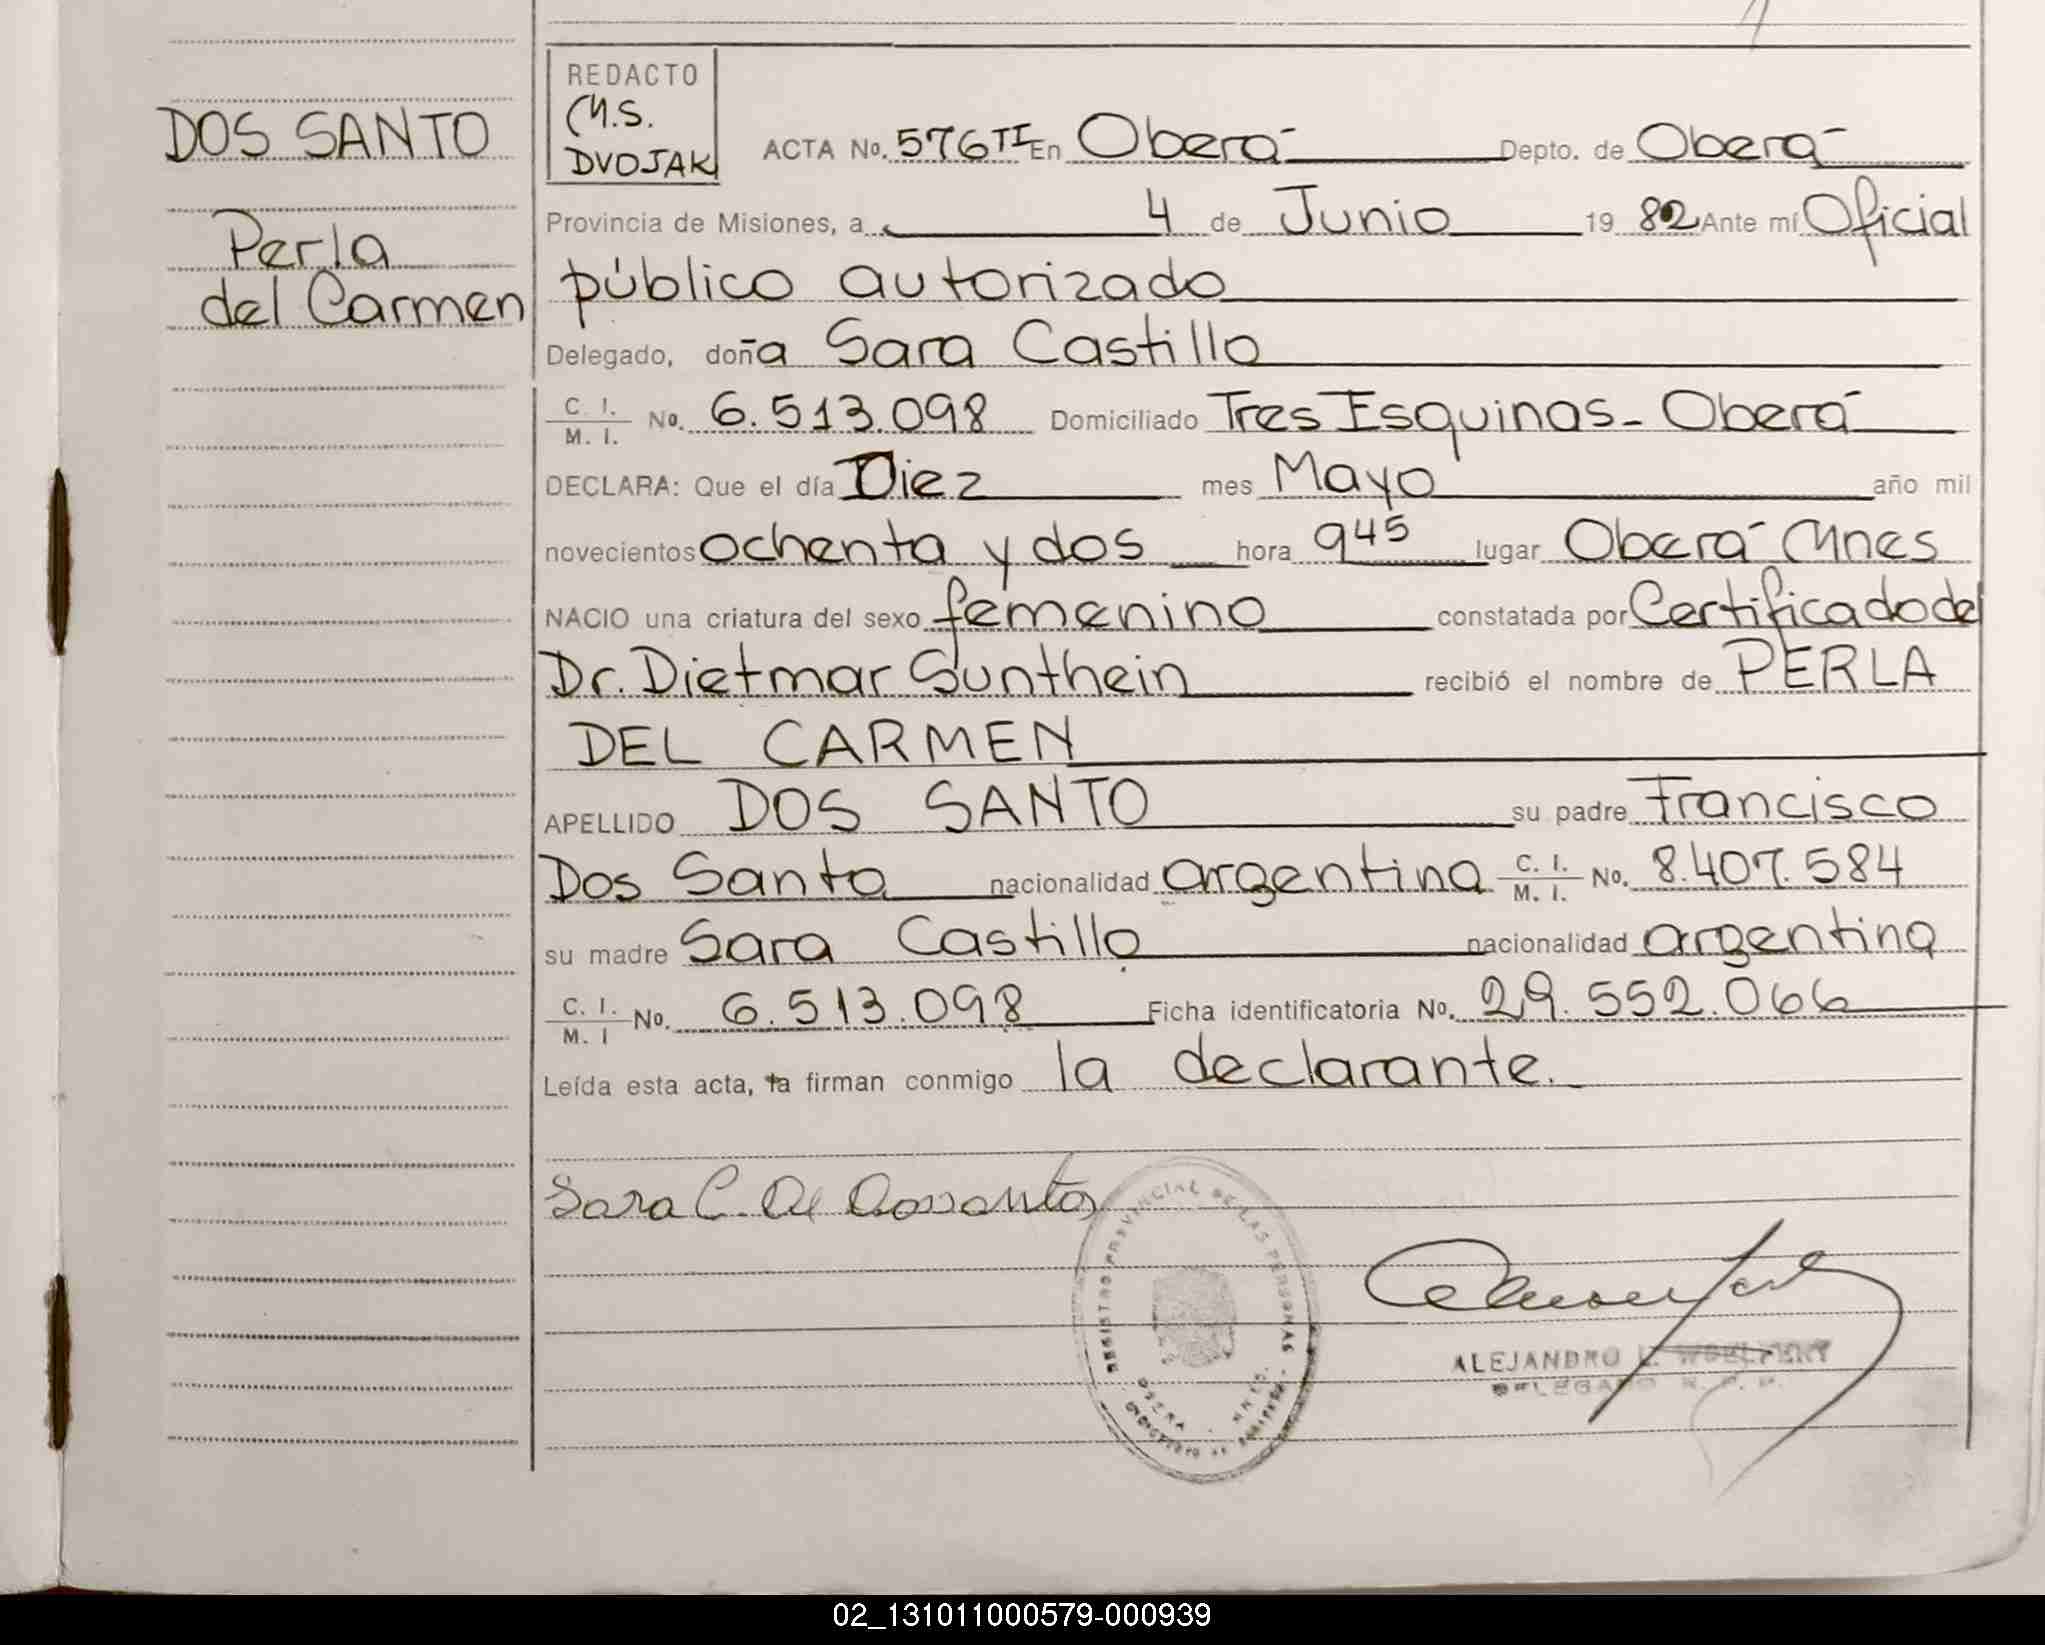 DOS SANTO
Perla
del Carmen
REDACTO
M.S.
DVOJAK
ACTA No. 576 TI En Oberá Depto. de Oberá
Provincia de Misiones, a 4 de Junio 1982 Ante mí Oficial
público autorizado
Delegado, doña Sara Castillo
C. I. / M. I. No. 6.513.098 Domiciliado Tres Esquinas - Oberá
DECLARA: Que el día Diez mes Mayo año mil
novecientos ochenta y dos hora 9 45 lugar Oberá Mnes
NACIO una criatura del sexo femenino constatada por Certificado del
Dr. Dietmar Sunthein recibió el nombre de PERLA
DEL CARMEN
APELLIDO DOS SANTO su padre Francisco
Dos Santo nacionalidad argentina C. I. / M. I. No. 8.407.584
su madre Sara Castillo nacionalidad argentina
C. I. / M. I No. 6.513.098 Ficha identificatoria No. 29.552.066
Leída esta acta, la firman conmigo la declarante.
Sara C. de Dossantos
REGISTRO PROVINCIAL DE LAS PERSONAS
OBERA MNES.
ALEJANDRO
DELEGADO R. P. P.
02_131011000579-000939